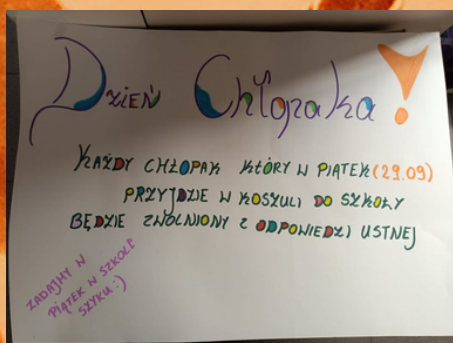 Dzień Chłopaka!
KAŻDY CHŁOPAK KTÓRY W PIĄTEK (29.09)
PRZYJDZIE W KOSZULI DO SZKOŁY
BĘDZIE ZWOLNIONY Z ODPOWIEDZI USTNEJ
ZADAJMY W
PIĄTEK W SZKOLE
SZYKU :)